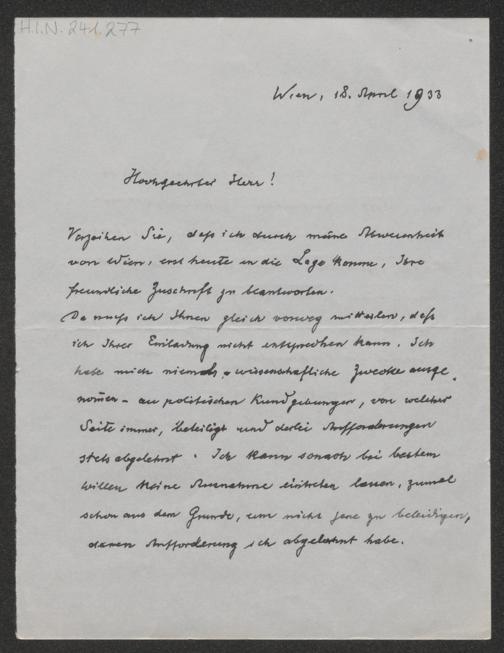 H.I.N. 241.277
Wien, 18. April 1933
Hochgeehrter Herr!
Verzeihen Sie, daß ich durch meine Abwesenheit
von Wien, erst heute in die Lage komme, Ihre
freundliche Zuschrift zu beantworten.
Da muß ich Ihnen gleich vorweg mitteilen, daß
ich Ihrer Einladung nicht entsprechen kann. Ich
habe mich niemals, – wissenschaftliche Zwecke ausge
nom̄en – an politischen Kundgebungen, von welcher
Seite immer, beteiligt und derlei Aufforderungen
stets abgelehnt. Ich kann sonach bei bestem
Willen keine Ausnahme eintreten lassen, zumal
schon aus dem Grunde, um nicht jene zu beleidigen,
deren Aufforderung ich abgelehnt habe.